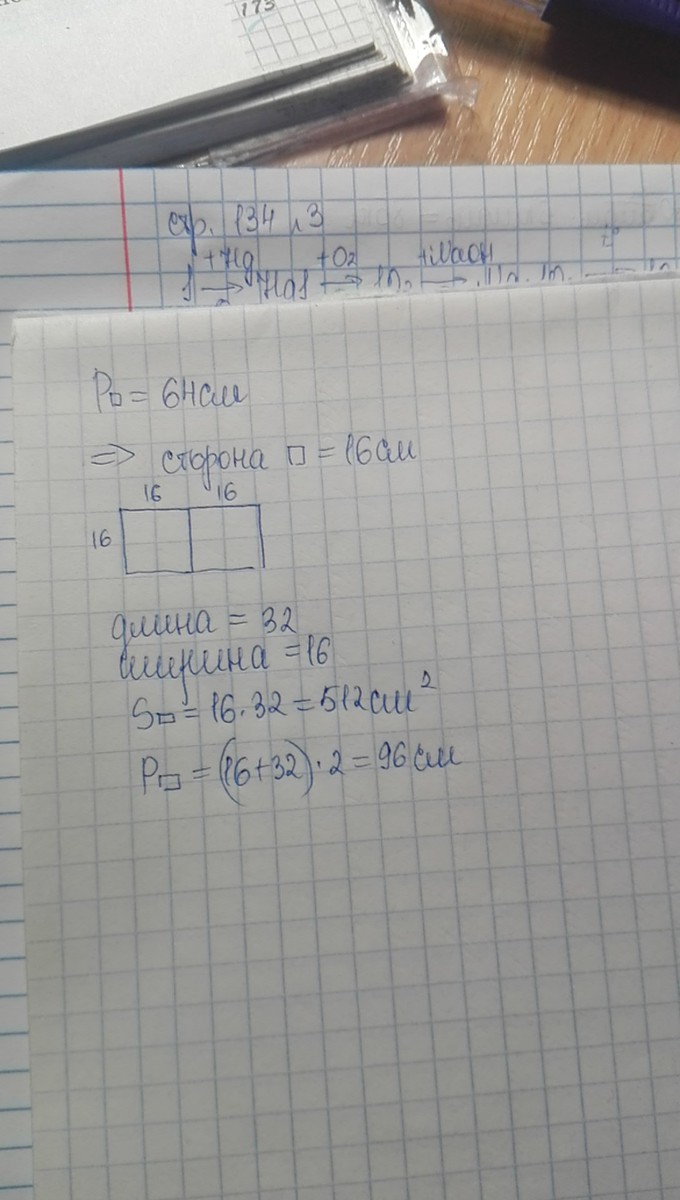 173
стр. 134 №3
+Hg +O₂ +NaOH t°
P□ = 64см
=> сторона □ = 16см
16 16
16
длина = 32
ширина = 16
S▭ = 16·32 = 512см²
P▭ = (16+32)·2 = 96см